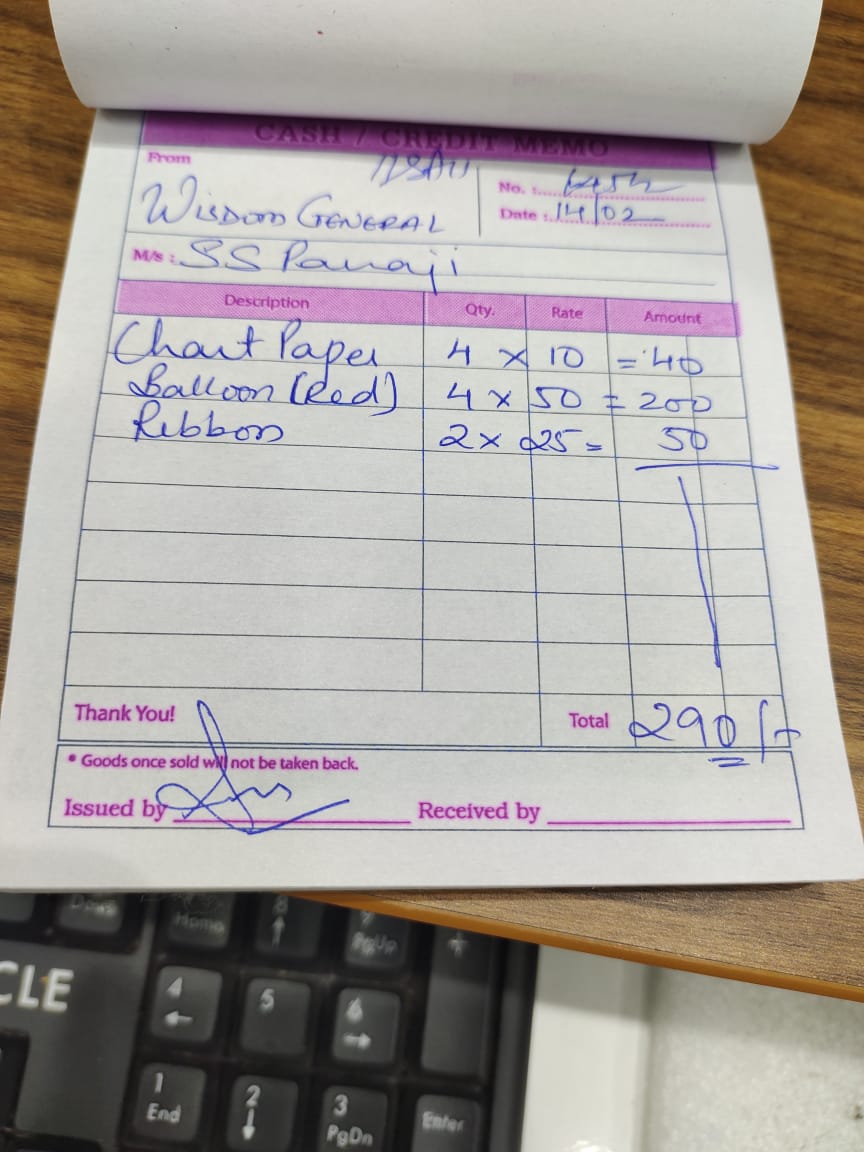 CASH / CREDIT MEMO
From
No. : Cash
WISDOM GENERAL
Date : 14/02
M/s : SS Panaji
Description Qty. Rate Amount
Chart Paper 4 x 10 = 40
Balloon (Red) 4 x 50 = 200
Ribbon 2 x 25 = 50
Thank You! Total 290/-
* Goods once sold will not be taken back.
Issued by Received by
Down Home 8 9 PgUp +
CLE 4 5 6
1 End 2 3 PgDn Enter